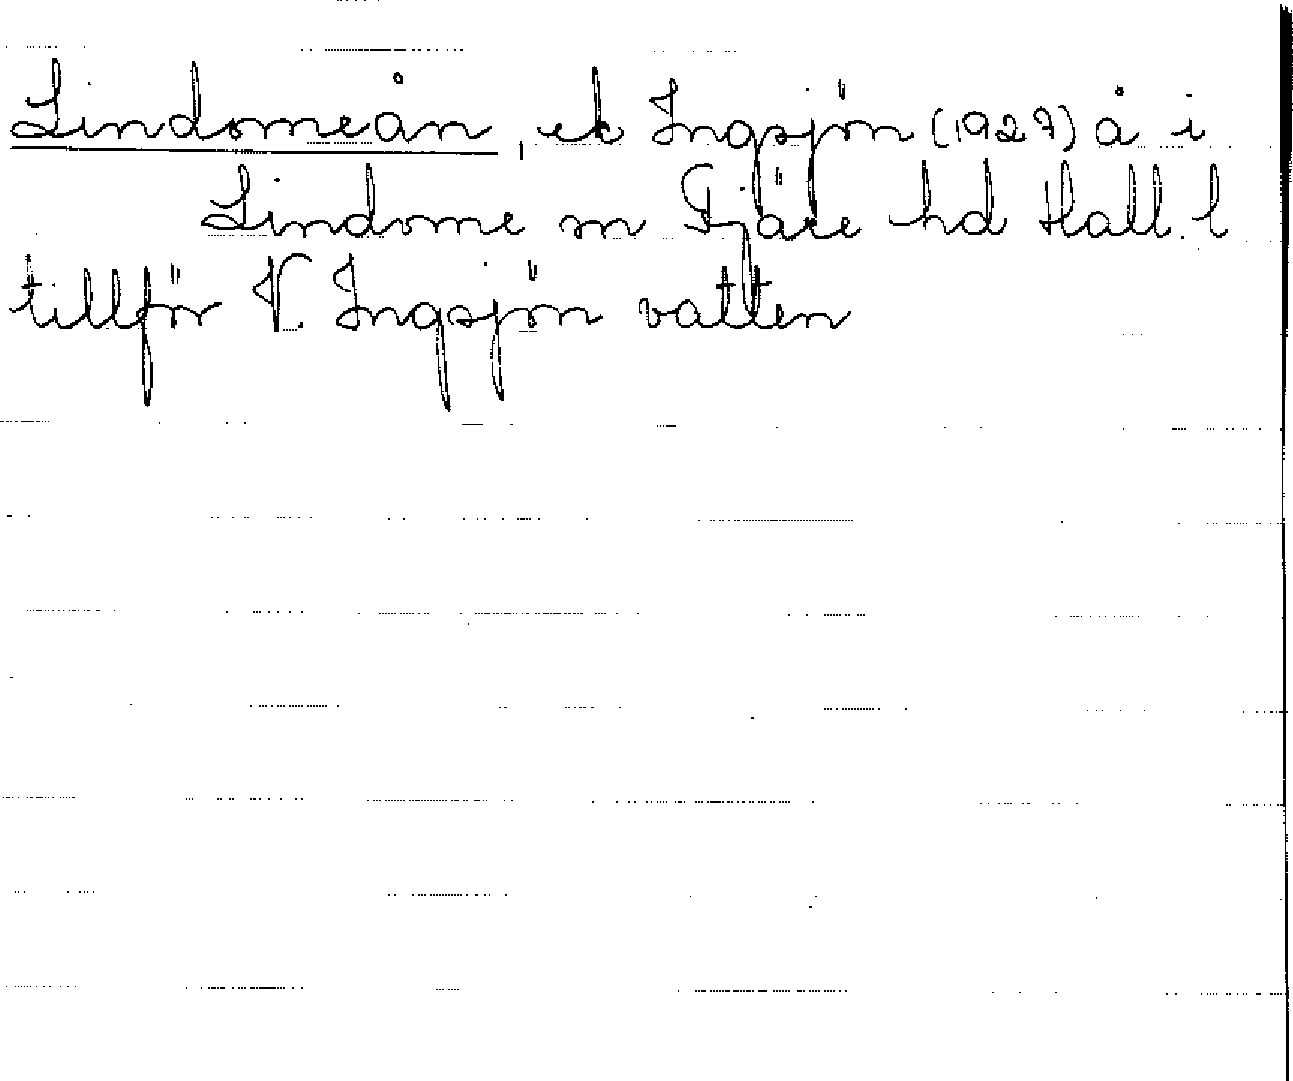 Lindomeån, ek Ingsjön (1927) å i
Lindome sn Fjäre hd Hall. l
tillför V. Ingsjön vatten